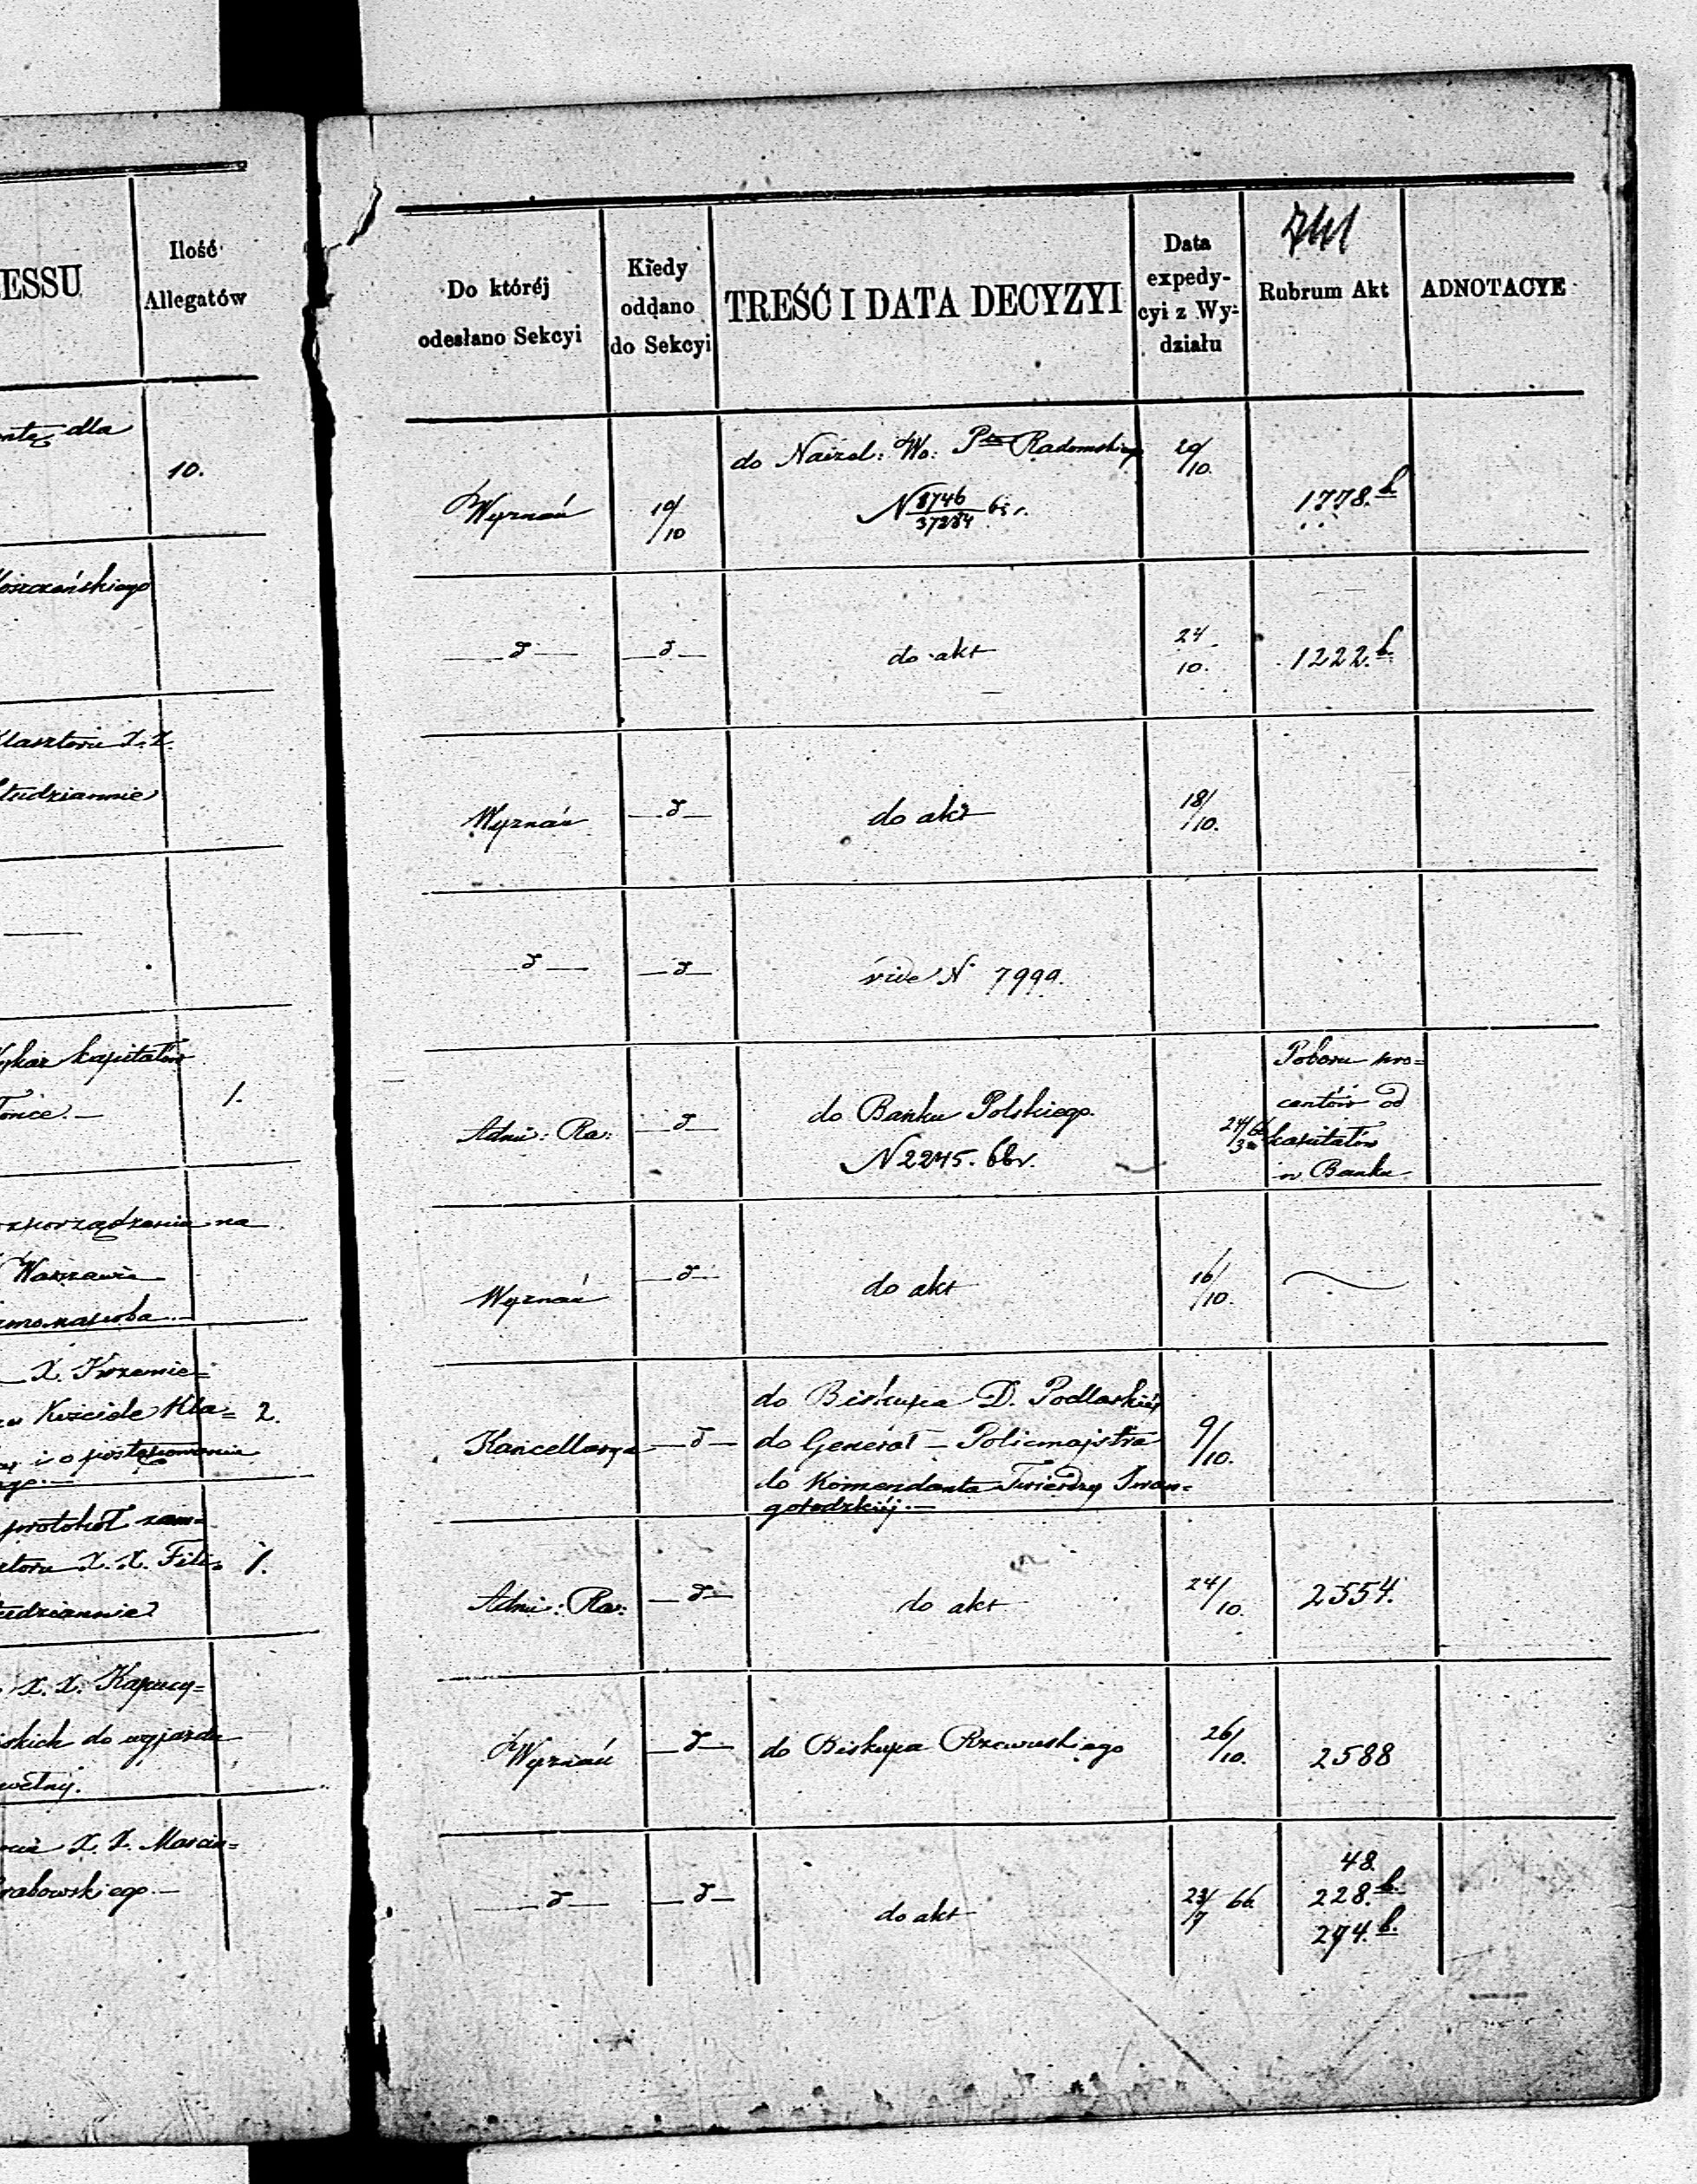 ESSU
Ilość
Allegatów
dla
10.
Klasztoru X.X.
Studziannie
kapitałów
1.
rozporządzenia na
Warszawie
X. Krzemie=
Kościele Kla= 2.
i o postępowaniu
protokół zam=
X.X. Fili= 1.
Studziannie
X.X. Kapucy=
do wyjazdu
X.X. Marcin=
Grabowskiego.—
741
Do któréj
odesłano Sekcyi
Kiedy
oddano
do Sekcyi
TREŚĆ I DATA DECYZYI
Data
expedy-
cyi z Wy-
działu
Rubrum Akt
ADNOTACYE
Wyznań
10/10
do Naczel: Wo: Ptu Radomskiego
N 8746/37284 65 r.
20/10.
1778.b
—d—
—d—
do akt
24
10.
1222.b
Wyznań
—d—
do akt
18/10.
—d—
—d—
vide N 7999.
Admi: Ra:
—d—
do Banku Polskiego.
N 2245. 66 r.
24/3 66
Poboru pro=
centów od
kapitałów
w Banku
Wyznań
—d—
do akt
16/10.
Kancellarya
—d—
do Biskupa D. Podlaskiéj
do Generał – Policmajstra
do Komendanta Twierdzy Iwan=
gorodzkiéj.—
9/10.
Admi: Ra:
—d—
do akt
24/10.
2554.
Wyznań
—d—
do Biskupa Rzewuskiego
26/10.
2588
—d—
—d—
do akt
23/7 66
48.
228.b.
274.b.